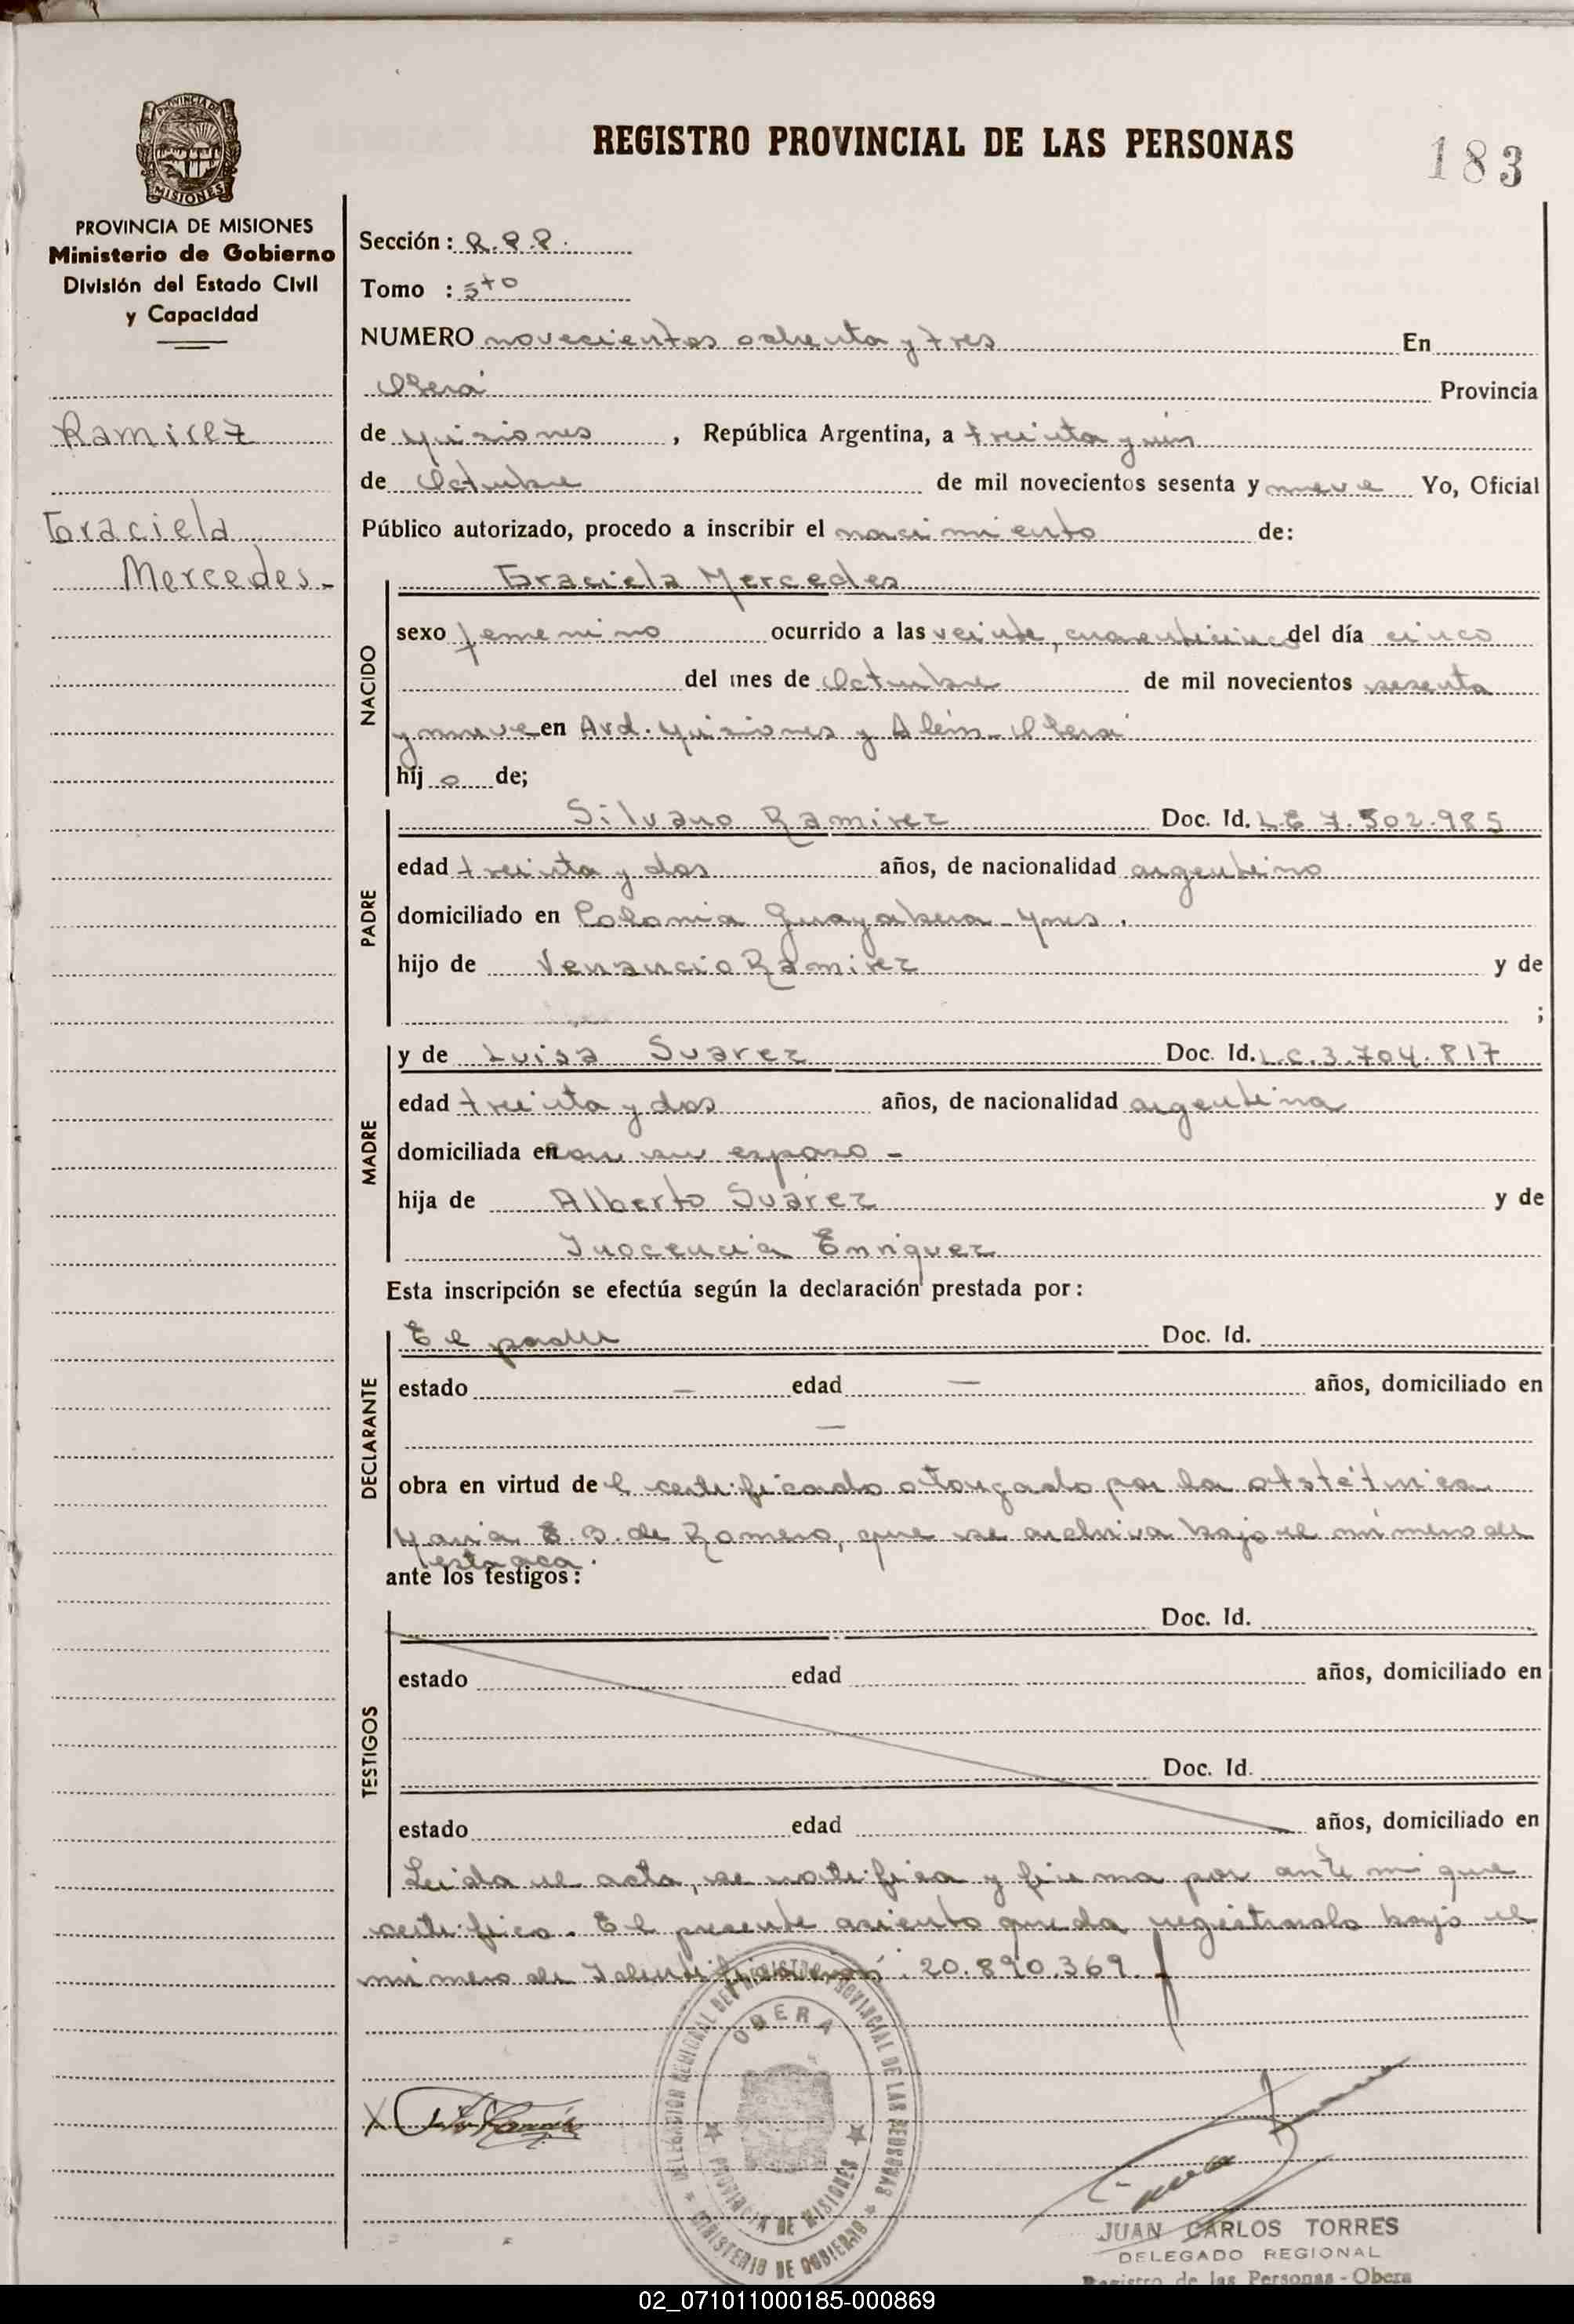 REGISTRO PROVINCIAL DE LAS PERSONAS
183
PROVINCIA DE MISIONES
PROVINCIA DE MISIONES
Ministerio de Gobierno
División del Estado Civil
y Capacidad
Ramirez
Graciela
Mercedes -
Sección: R.P.P.
Tomo : 5to
NUMERO novecientos ochenta y tres En
Oberá Provincia
de Misiones, República Argentina, a treinta y un
de Octubre de mil novecientos sesenta y nueve Yo, Oficial
Público autorizado, procedo a inscribir el nacimiento de:
NACIDO
Graciela Mercedes
sexo femenino ocurrido a las veinte, cuarenticinco del día cinco
del mes de Octubre de mil novecientos sesenta
y nueve en Avd. Misiones y Além - Oberá
hij a de;
PADRE
Silvano Ramirez Doc. Id. L.E 7.502.985
edad treinta y dos años, de nacionalidad argentino
domiciliado en Colonia Guayabera - Mnes.
hijo de Venancio Ramirez y de
;
MADRE
y de Luisa Suarez Doc. Id. L.C. 3.704.817
edad treinta y dos años, de nacionalidad argentina
domiciliada en con su esposo -
hija de Alberto Suárez y de
Inocencia Enriquez
Esta inscripción se efectúa según la declaración prestada por:
DECLARANTE
El padre Doc. Id.
estado — edad — años, domiciliado en
—
obra en virtud de l certificado otorgado por la obstétrica
Maria E. B. de Romero, que se archiva bajo el número de
esta aca.
ante los testigos:
TESTIGOS
Doc. Id.
estado edad años, domiciliado en
Doc. Id.
estado edad años, domiciliado en
Leida el acta, se notifica y firma por ante mi que
certifico. El presente asiento queda registrado bajo el
número de Identificación: 20.890.369
DELEGACION REGIONAL DEL REGISTRO PROVINCIAL DE LAS PERSONAS
OBERA
PROVINCIA DE MISIONES
MINISTERIO DE GOBIERNO
JUAN CARLOS TORRES
DELEGADO REGIONAL
Registro de las Personas - Obera
02_071011000185-000869